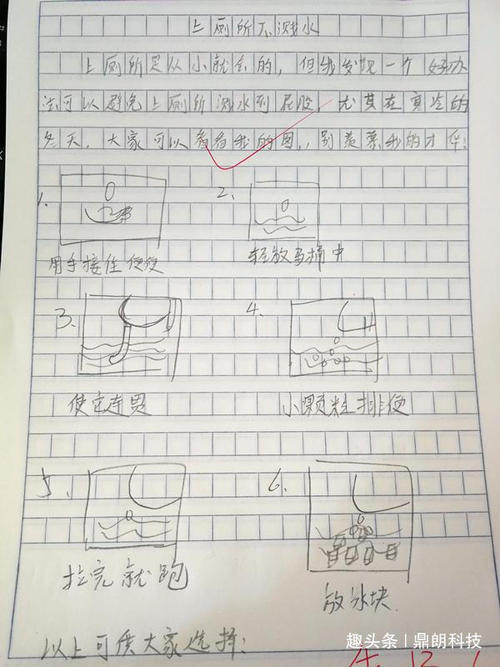 上厕所不溅水
上厕所是从小就会的，但我发现一个好办
法可以避免上厕所溅水到屁股，尤其在寒冷的
冬天，大家可以看看我的图，别羡慕我的才华：
1.
2.
用手接住便便
轻放马桶中
3.
4.
使它连贯
小颗粒排便
5.
6.
拉完就跑
放冰块
以上可供大家选择：
趣头条｜鼎朗科技